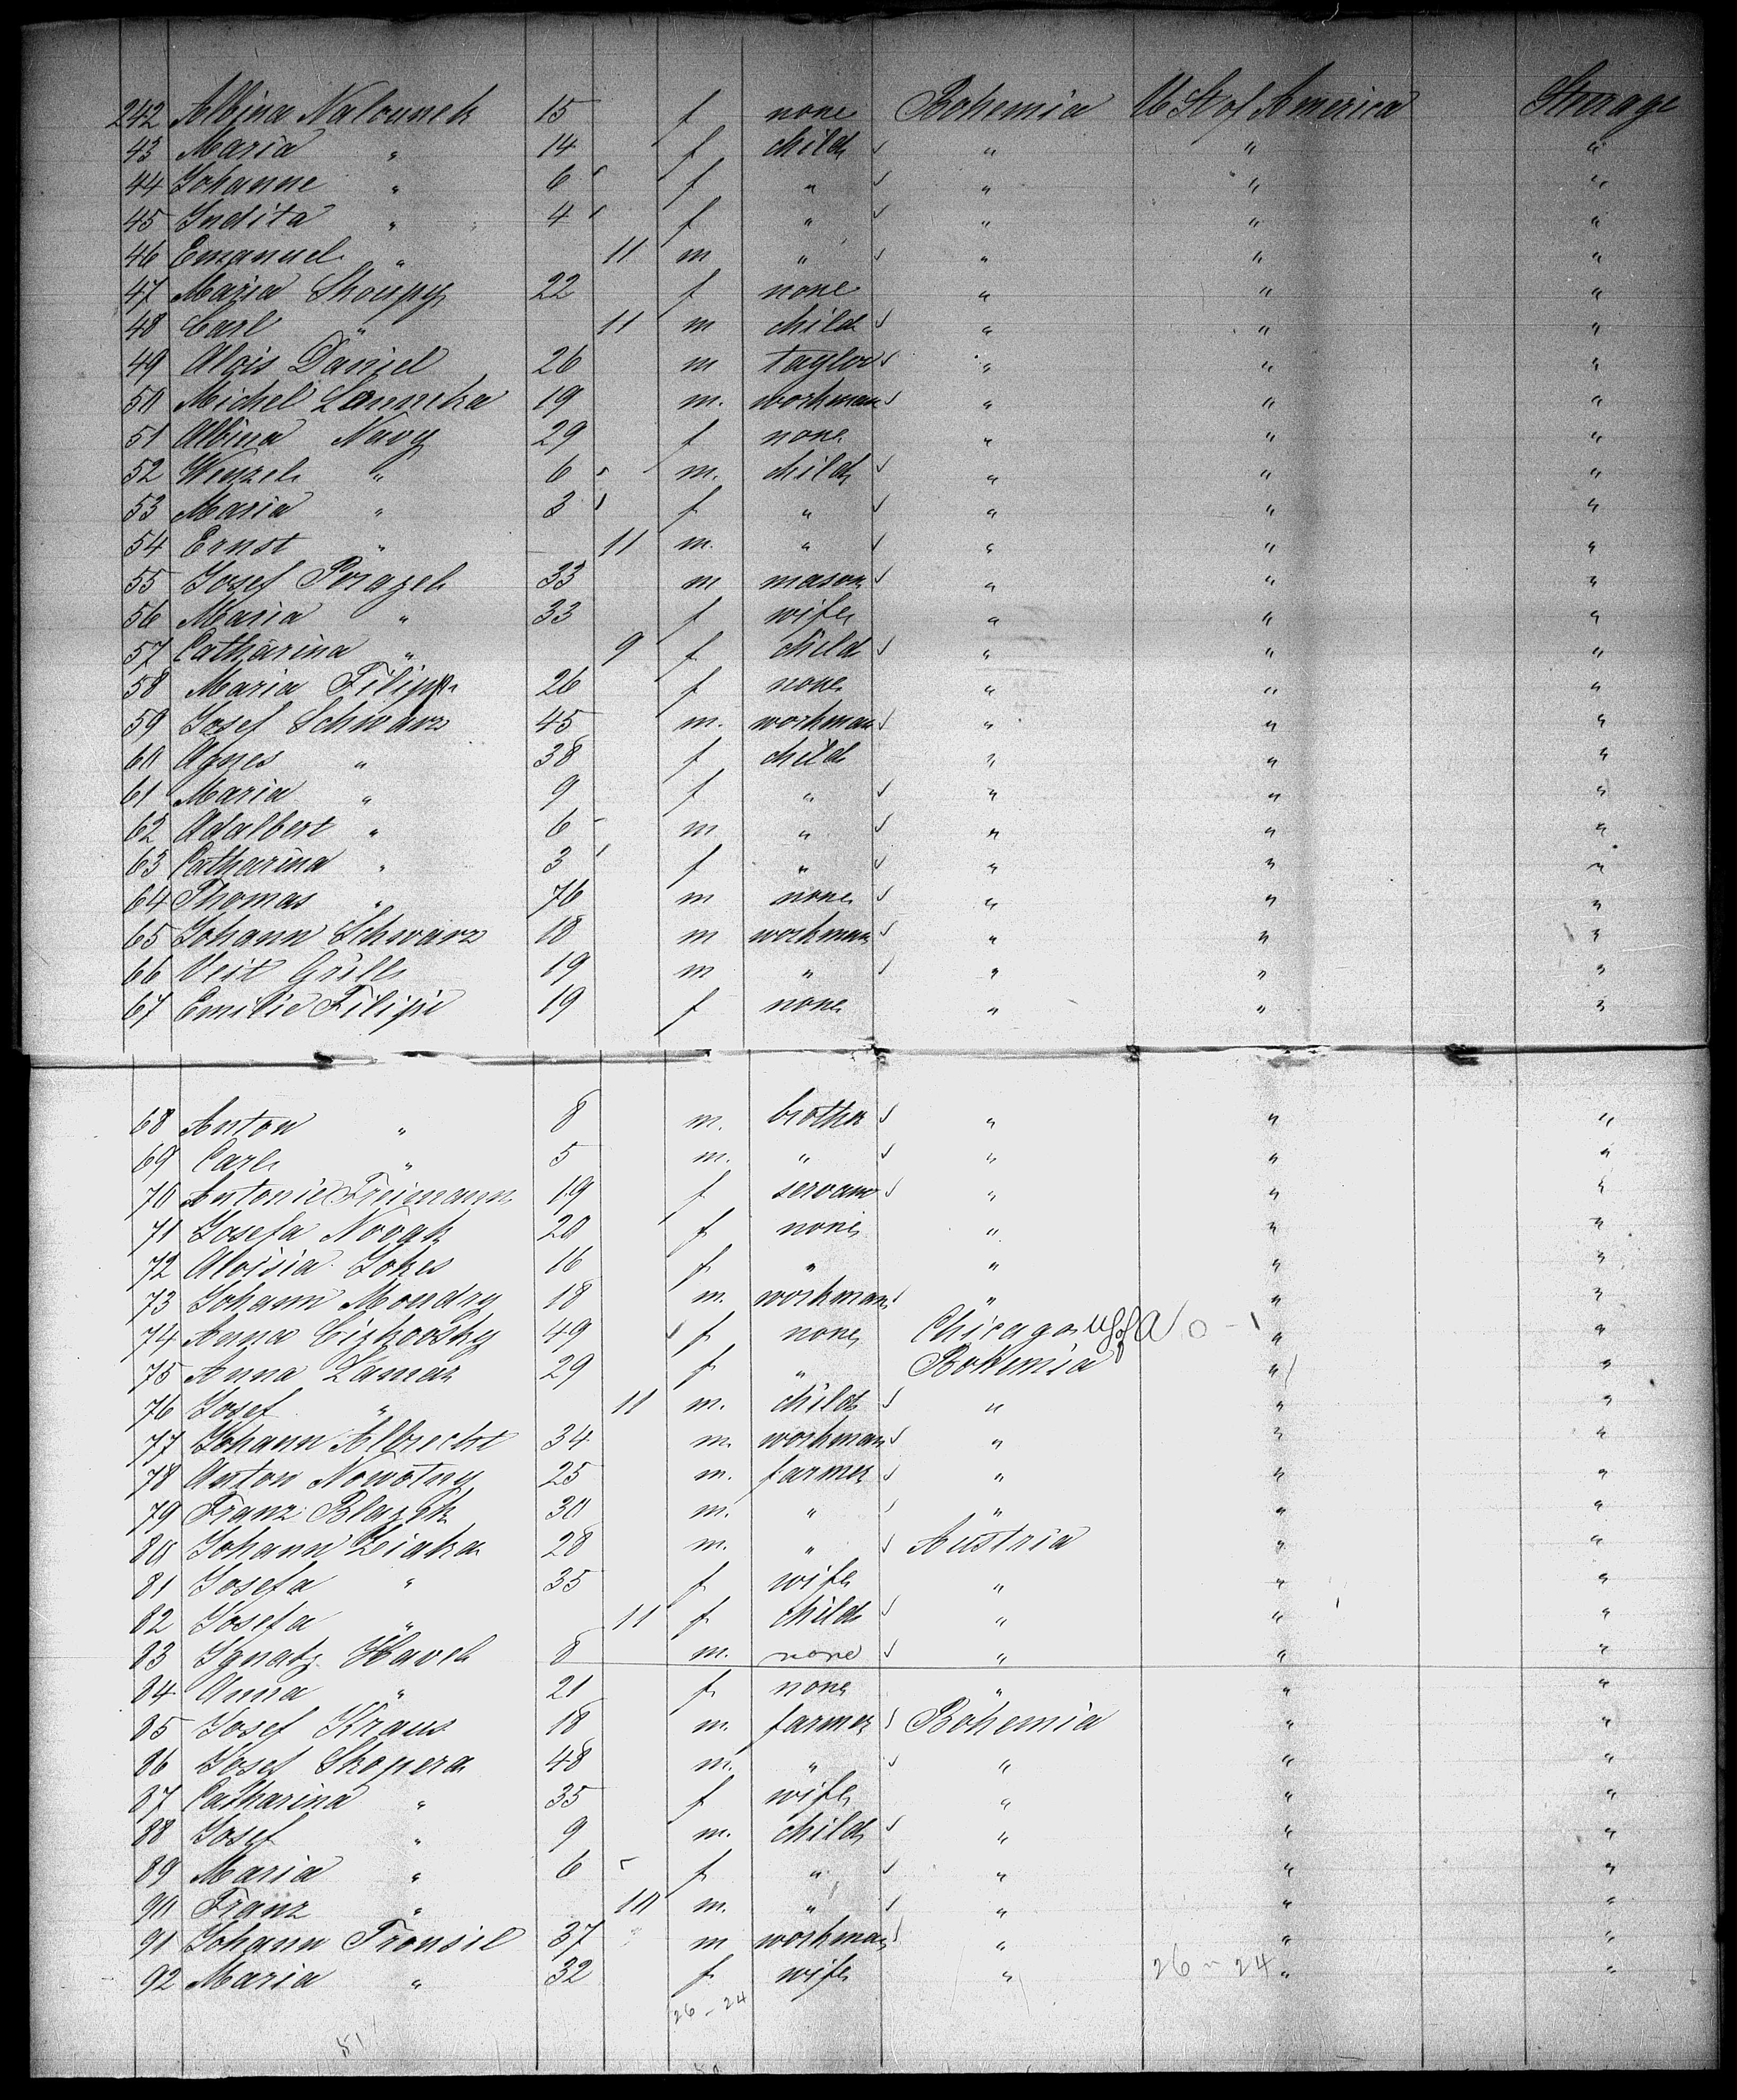 242 Albina Nalounek 15 f none Bohemia U St of America Sterage
43 Maria " 14 f child " " "
44 Johanne " 6 f " " " "
45 Judita " 4 f " " " "
46 Emanuel " 11 m " " " "
47 Maria Skoupy 22 f none " " "
48 Carl " 11 m child " " "
49 Alois Daniel 26 m taylor " " "
50 Michel 19 m. workman " " "
51 Albina Navy 29 f none " " "
52 Wenzel " 6 m. child " " "
53 Maria " 3 f " " " "
54 Ernst " 11 m. " " " "
55 Josef Porazek 33 m mason " " "
56 Maria " 33 f wife " " "
57 Catharina " 9 f child " " "
58 Maria Filipp 26 f none " " "
59 Josef Schwarz 45 m. workman " " "
60 Agnes " 38 f child " " "
61 Maria " 9 f " " " "
62 Adalbert " 6 m " " " "
63 Catharina " 3 f " " " "
64 Thomas " 76 m none " " "
65 Johann Schwarz 18 m workman " " "
66 Veit Grill 19 m " " " "
67 Emilie Filipi 19 f none " " "
68 Anton " 8 m. brother " " "
69 Carl " 5 m. " " " "
70 Antonie Freimann 19 f servant " " "
71 Josefa Novak 20 f none " " "
72 Aloisia Jokes 16 f " " " "
73 Johann Mondry 18 m. workman " " "
74 Anna Cizkovsky 49 f none Chicago US of A " "
75 Anna 29 f " Bohemia " "
76 Josef " 11 m. child " " "
77 Johann Albrecht 34 m. workman " " "
78 Anton Nowotny 25 m. farmer " " "
79 Franz Blazek 30 m. " " " "
80 Johann Zicha 28 m. " Austria " "
81 Josefa " 35 f wife " " "
82 Josefa " 11 f child " " "
83 Ignatz Havel 8 m. none " " "
84 Anna " 21 f none " " "
85 Josef Kraus 18 m. farmer Bohemia " "
86 Josef Skopera 48 m. " " " "
87 Catharina " 35 f wife " " "
88 Josef " 9 m. child " " "
89 Maria " 6 f " " " "
90 Franz " 10 m. " " " "
91 Johann Tronsil 37 m workman " " "
92 Maria " 32 f wife " 26-24 " "
26-24